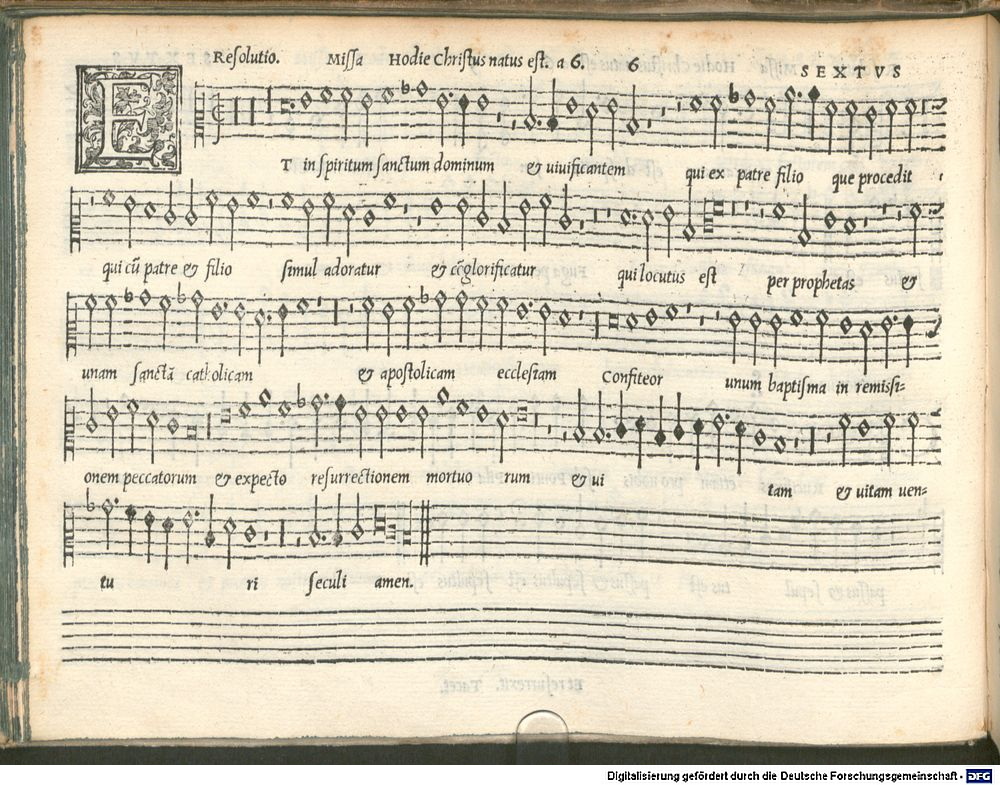 Resolutio. Missa Hodie Christus natus est. a 6. 6 SEXTVS
ET in spiritum sanctum dominum & uiuificantem qui ex patre filio que procedit
qui cũ patre & filio simul adoratur & cõglorificatur qui locutus est per prophetas &
unam sanctã catholicam & apostolicam ecclesiam Confiteor unum baptisma in remissi-
onem peccatorum & expecto resurrectionem mortuo rum & ui tam & uitam uen-
tu ri seculi amen.
Digitalisierung gefördert durch die Deutsche Forschungsgemeinschaft - DFG